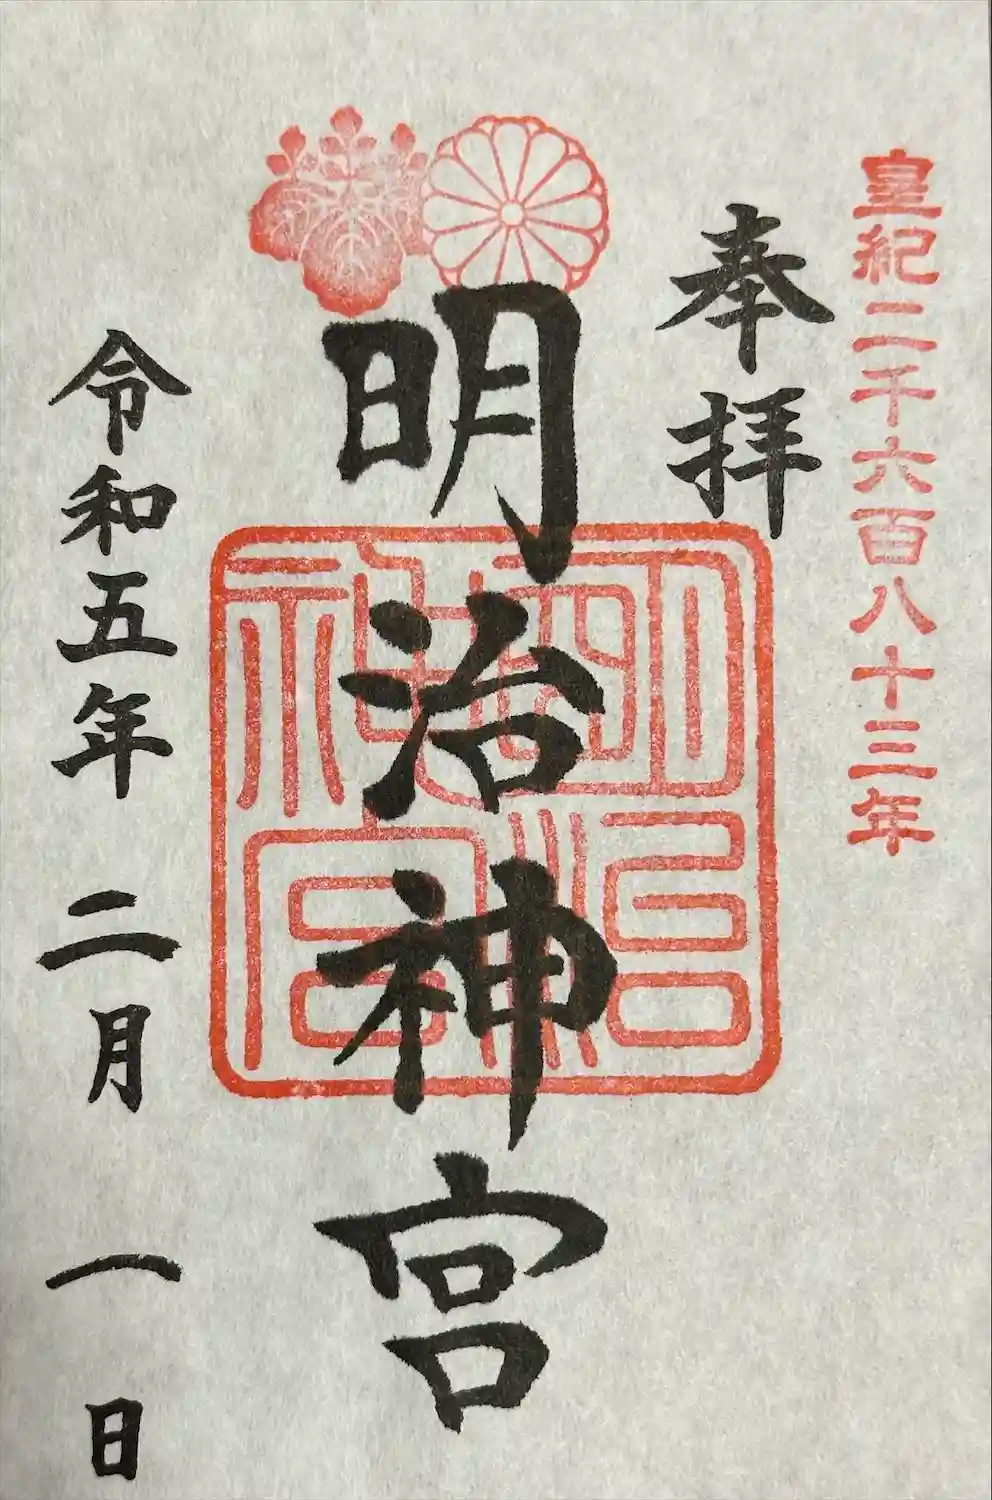 皇紀二千六百八十三年
奉拝
明治神宮
明治神宮
令和五年二月一日